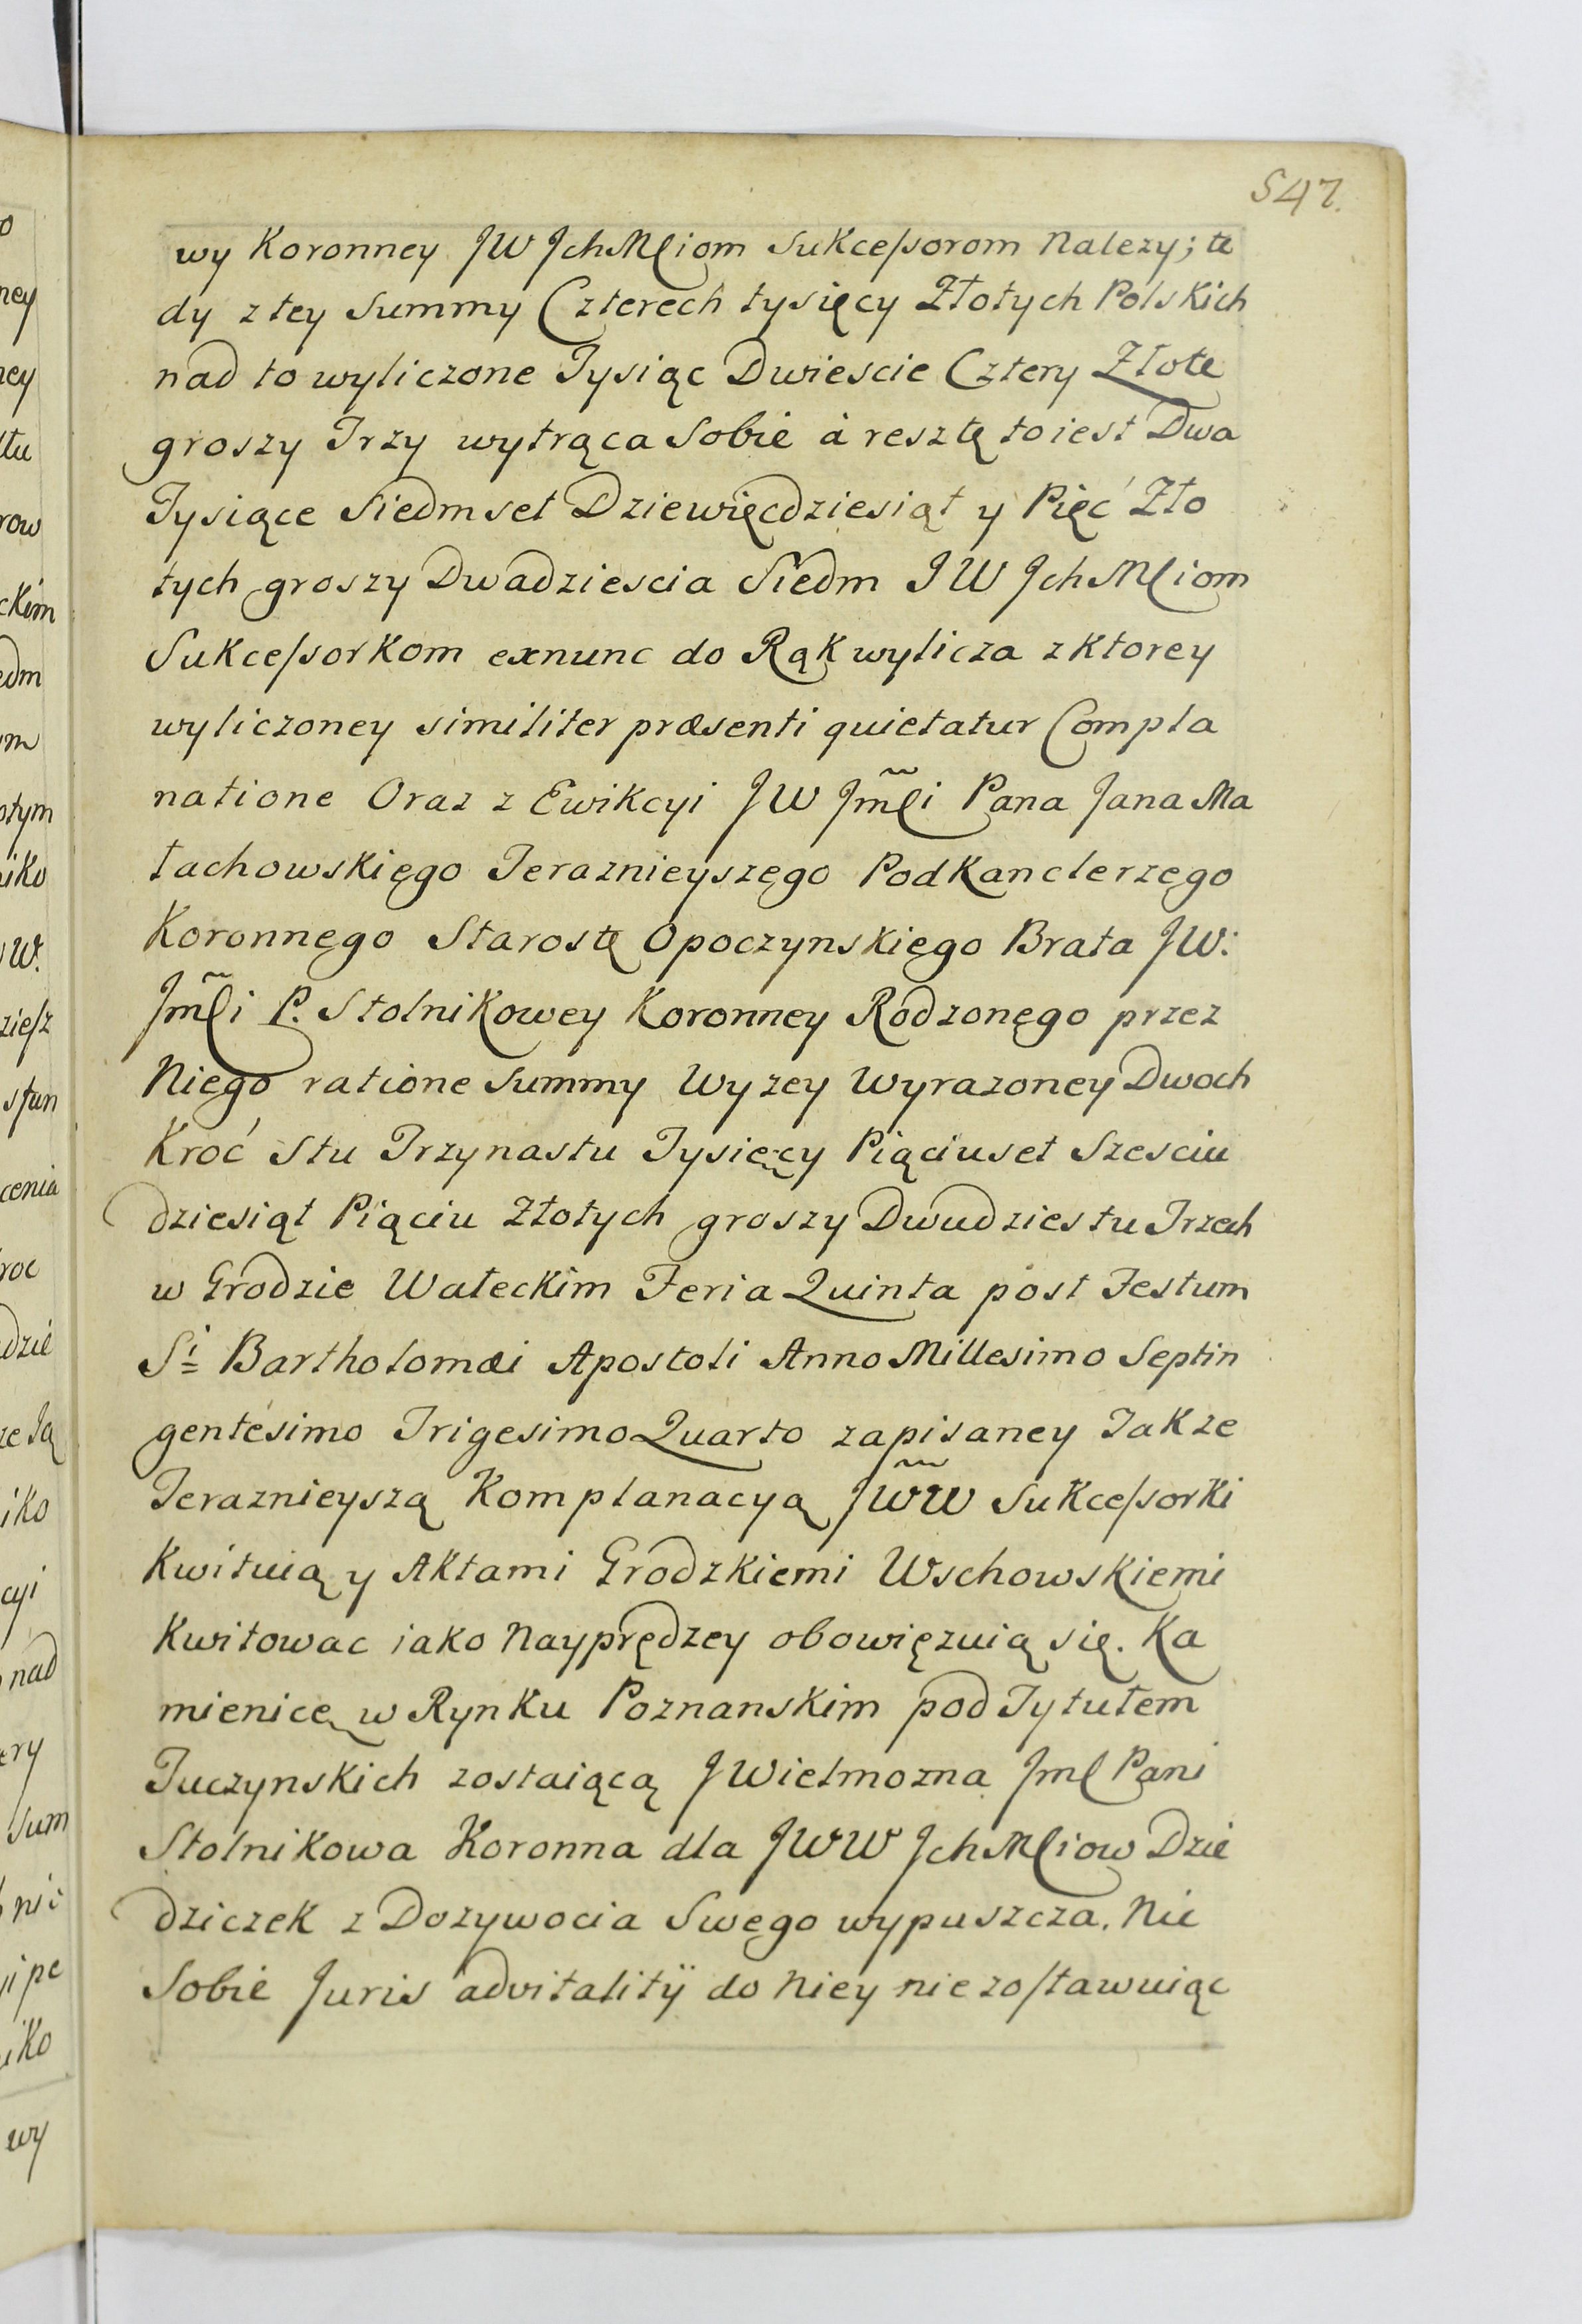 547.
wy Koronney JW JchMściom Sukcessorom Nalezy; te
dy z tey Summy Czterech tysięcy Złotych Polskich
nad to wyliczone Tysiąc Dwiescie Cztery Złote
groszy Trzy wytrąca Sobie à resztę toiest Dwa
Tysiące Siedmset Dziewięcdziesiąt y Pięć Zło
tych groszy Dwadziescia Siedm JW JchMściom
Sukcessorkom exnunc do Rąk wylicza z Ktorey
wyliczoney similiter præsenti quietatur Compla
natione Oraz z Ewikcyi JW Jmści Pana Jana Ma
łachowskięgo Teraznieyszęgo PodKanclerzęgo
Koronnęgo Starostę Opoczynskięgo Brata JW:
Jmści P. Stolnikowey Koronney Rodzonęgo przez
Niego ratione Summy Wyzey Wyrazoney Dwoch
Kroć Stu Trzynastu Tysięcy Piąciuset Szesciu
dziesiąt Piąciu Złotych groszy Dwudziestu Trzech
w Grodzie Wałeckim Feria Quinta post Festum
Si Bartholomæi Apostoli Anno Millesimo Septin
gentesimo Trigesimo Quarto zapisaney Jakze
Teraznieyszą Komplanacyą JWW Sukcessorki
Kwituią y Aktami Grodzkiemi Wschowskiemi
Kwitowac iako Nayprędzey obowięzuią się. Ka
mienicę w Rynku Poznanskim pod Tytułem
Tuczynskich zostaiącą JWielmozna Jmść Pani
Stolnikowa Koronna dla JWW JchMściow Dzie
dziczek z Dozywocia Swęgo wypuszcza. Nic
Sobie Juris advitalitÿ do Niey nie zostawuiąc